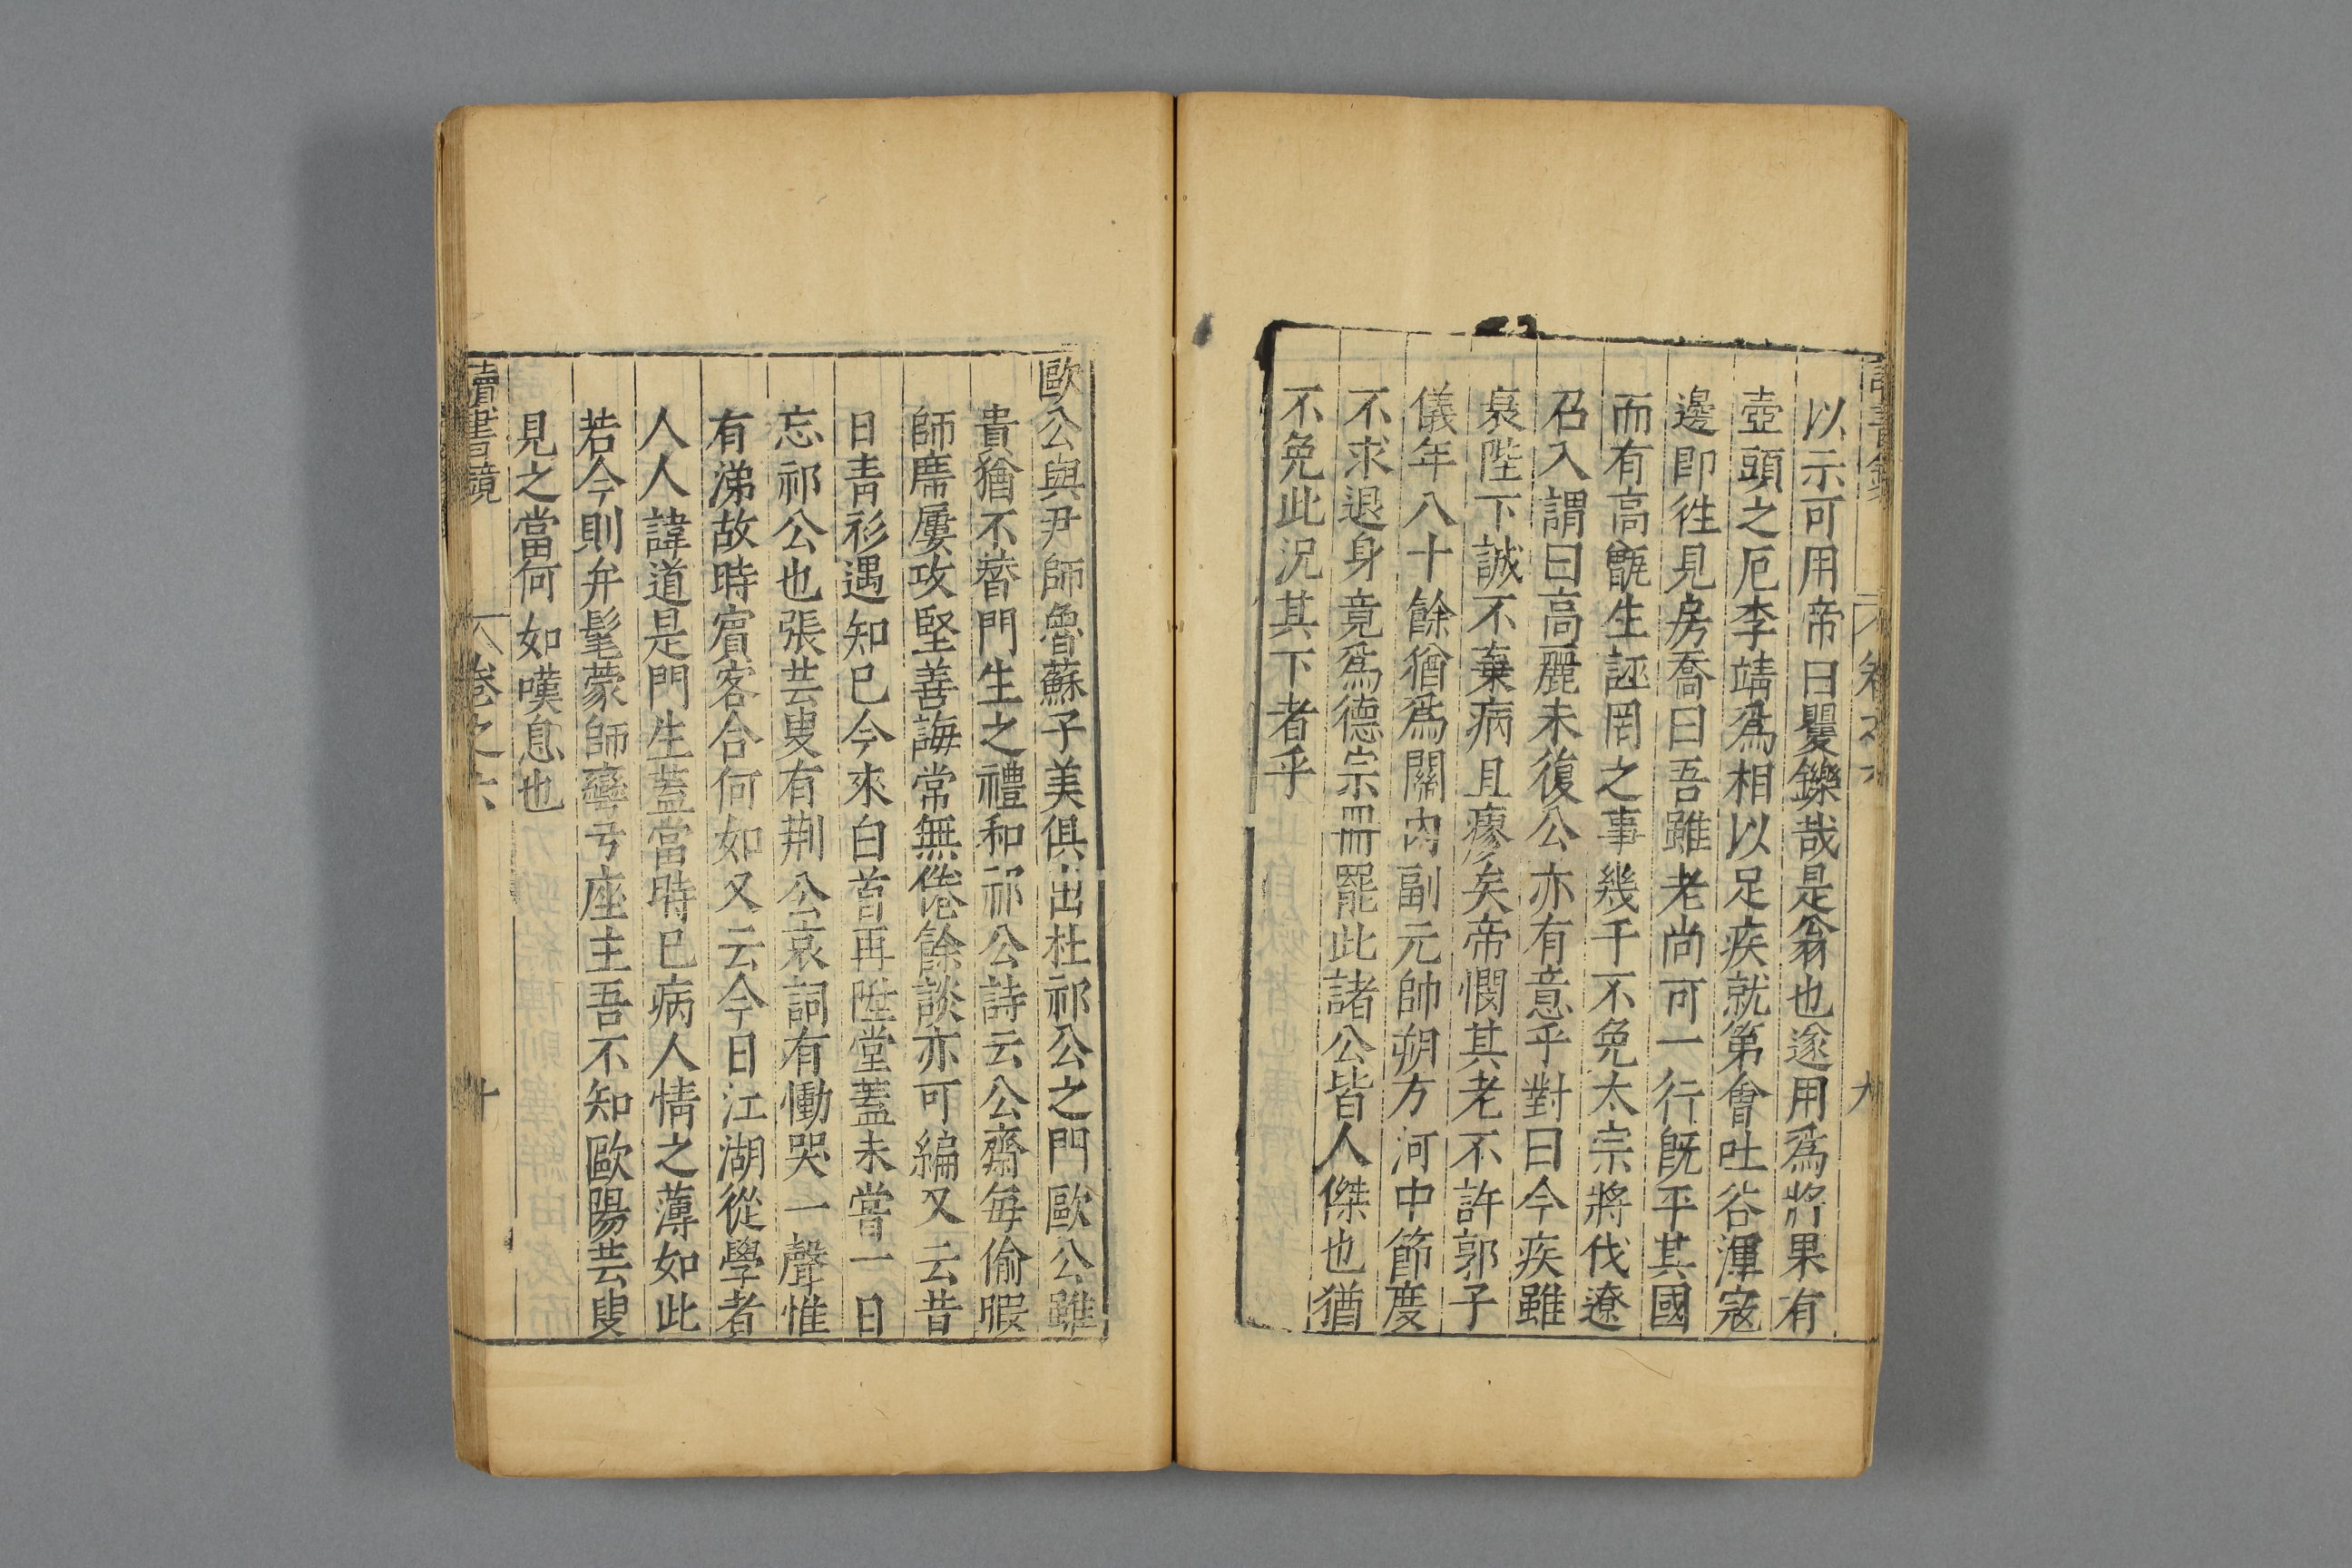 卷之六
九
以示可用帝曰矍鑠哉是翁也遂用爲將果有
壺頭之厄李靖爲相以足疾就第會吐谷渾寇
邊即徃見房喬曰吾雖老尚可一行旣平其國
而有高甑生誣罔之事幾千不免太宗將伐遼
召入謂曰高麗未復公亦有意乎對曰今疾雖
衰陛下誠不棄病且瘳矣帝憫其老不許郭子
儀年八十餘猶爲關內副元帥朔方河中節度
不求退身竟爲德宗冊罷此諸公皆人傑也猶
不免此況其下者乎
歐公與尹師魯蘇子美俱出杜祁公之門歐公雖
貴猶不替門生之禮和祁公詩云公齋每偷暇
師席屢攻堅善誨常無倦餘談亦可編又云昔
日青衫遇知已今來白首再陞堂蓋未嘗一日
忘祁公也張芸叟有荆公哀詞有慟哭一聲惟
有涕故時賔客合何如又云今日江湖從學者
人人諱道是門生蓋當時已病人情之薄如此
若今則弁髦蒙師彎弓座主吾不知歐陽芸叟
見之當何如嘆息也
讀書鏡
卷之六
十